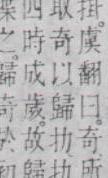 掛虞翻曰。奇所
取奇以歸扐扐
四時成歲。故歸
之。歸奇於